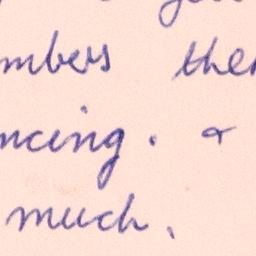 mbers the
ncing. &
much.